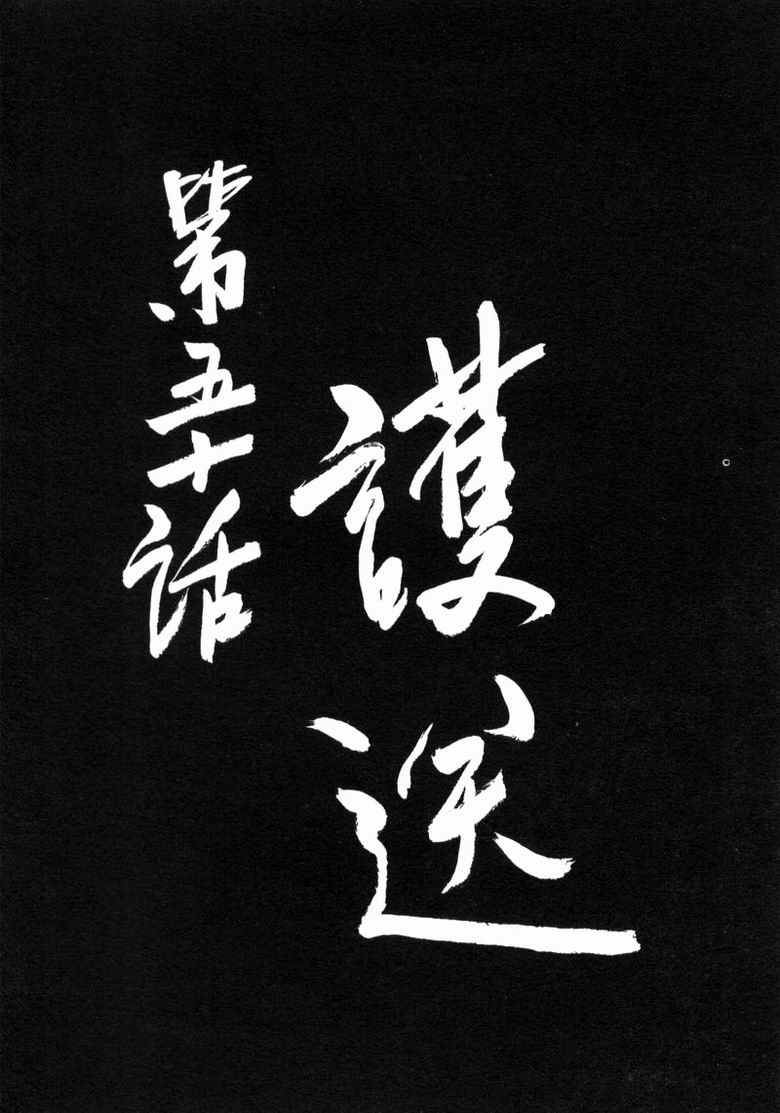 護送
第五十話